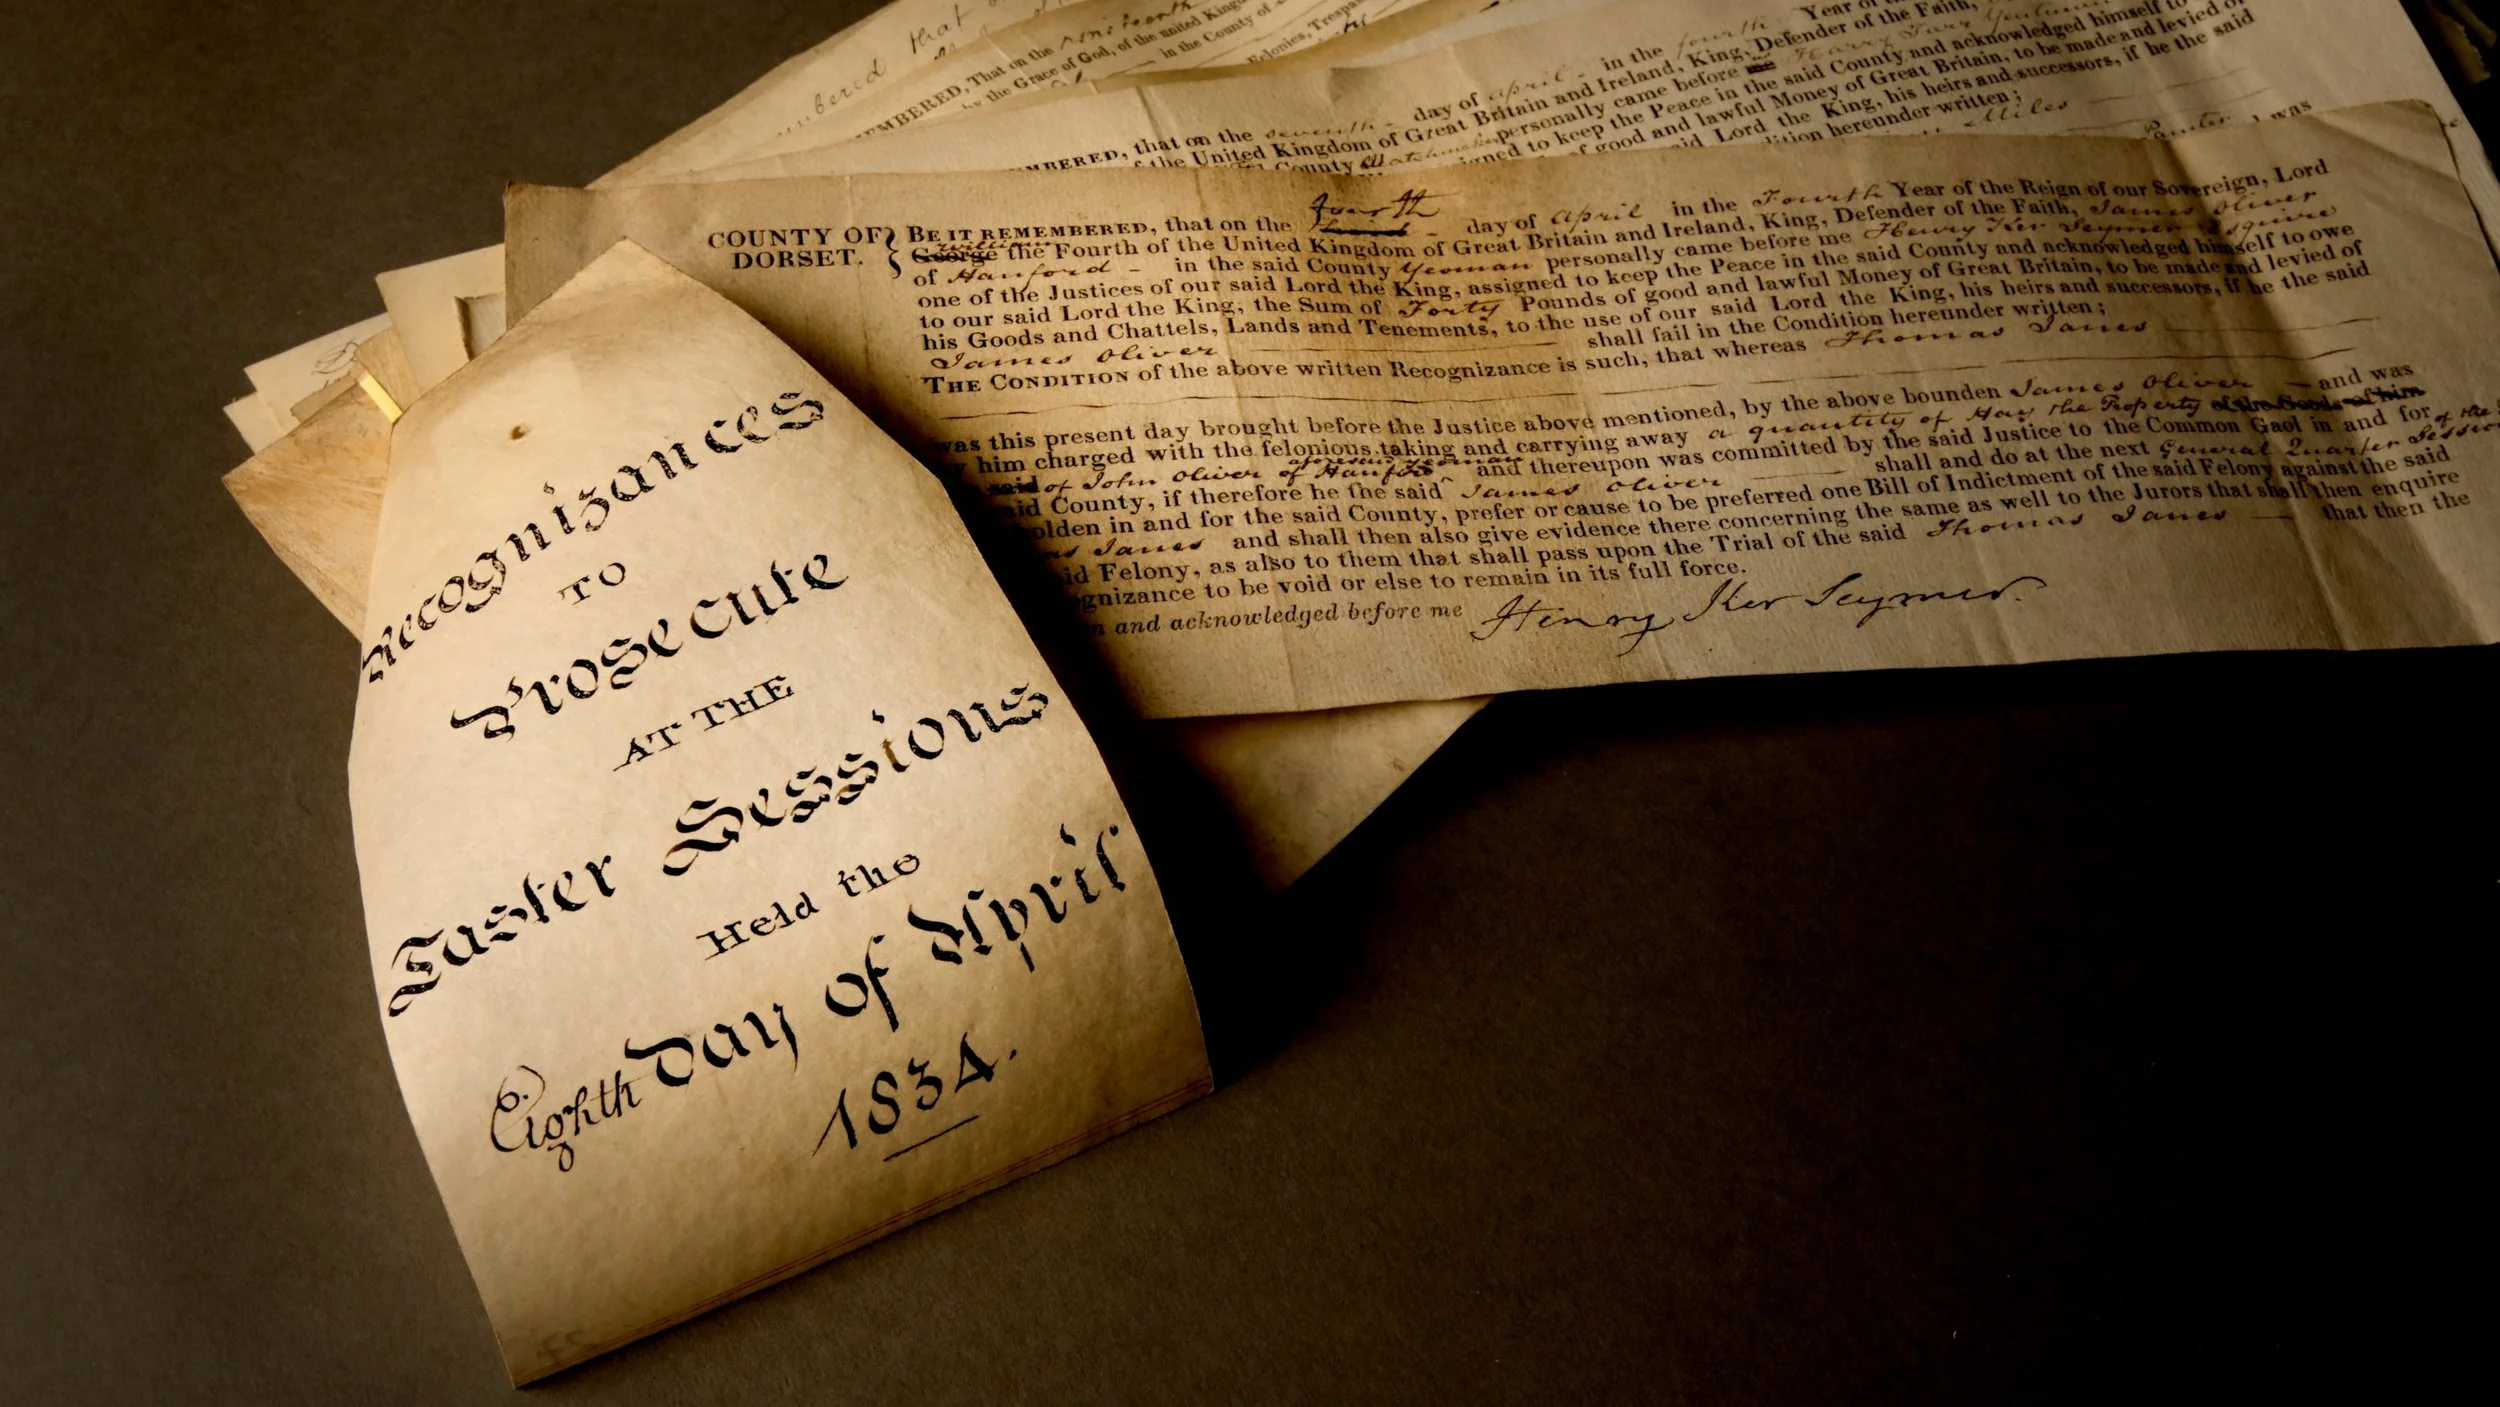 Recognizances
TO
Prosecute
AT THE
Easter Sessions
Held the
Eighth Day of April
1834.
COUNTY OF
DORSET.
BE IT REMEMBERED, that on the fourth day of April in the Fourth Year of the Reign of our Sovereign, Lord
William
George the Fourth of the United Kingdom of Great Britain and Ireland, King, Defender of the Faith, James Oliver
of Hanford - in the said County Yeoman personally came before me Henry Ker Seymer Esquire
one of the Justices of our said Lord the King, assigned to keep the Peace in the said County and acknowledged himself to owe
to our said Lord the King, the Sum of Forty Pounds of good and lawful Money of Great Britain, to be made and levied of
his Goods and Chattels, Lands and Tenements, to the use of our said Lord the King, his heirs and successors, if he the said
James Oliver shall fail in the Condition hereunder written;
THE CONDITION of the above written Recognizance is such, that whereas Thomas Janes
was this present day brought before the Justice above mentioned, by the above bounden James Oliver - and was
him charged with the felonious taking and carrying away a quantity of Hay the Property of the Goods of him
said of John Oliver of Hanford aforesaid yeoman and thereupon was committed by the said Justice to the Common Gaol in and for
County, if therefore he the said James Oliver shall and do at the next General Quarter Sessions of the
holden in and for the said County, prefer or cause to be preferred one Bill of Indictment of the said Felony against the said
Janes and shall then also give evidence there concerning the same as well to the Jurors that shall then enquire
Felony, as also to them that shall pass upon the Trial of the said Thomas Janes - that then the
to be void or else to remain in its full force.
and acknowledged before me Henry Ker Seymer.
that on the seventh - day of April - in the fourth Year of
the United Kingdom of Great Britain and Ireland, King, Defender of the Faith,
County Watchmaker personally came before me Harry Farr Yeatman
to keep the Peace in the said County and acknowledged himself to
of good and lawful Money of Great Britain, to be made and levied of
said Lord the King, his heirs and successors, if he the said
hereunder written;
Miles
Painter was
That on the nineteenth
the Grace of God, of the united
in the County of
Felonies,
that